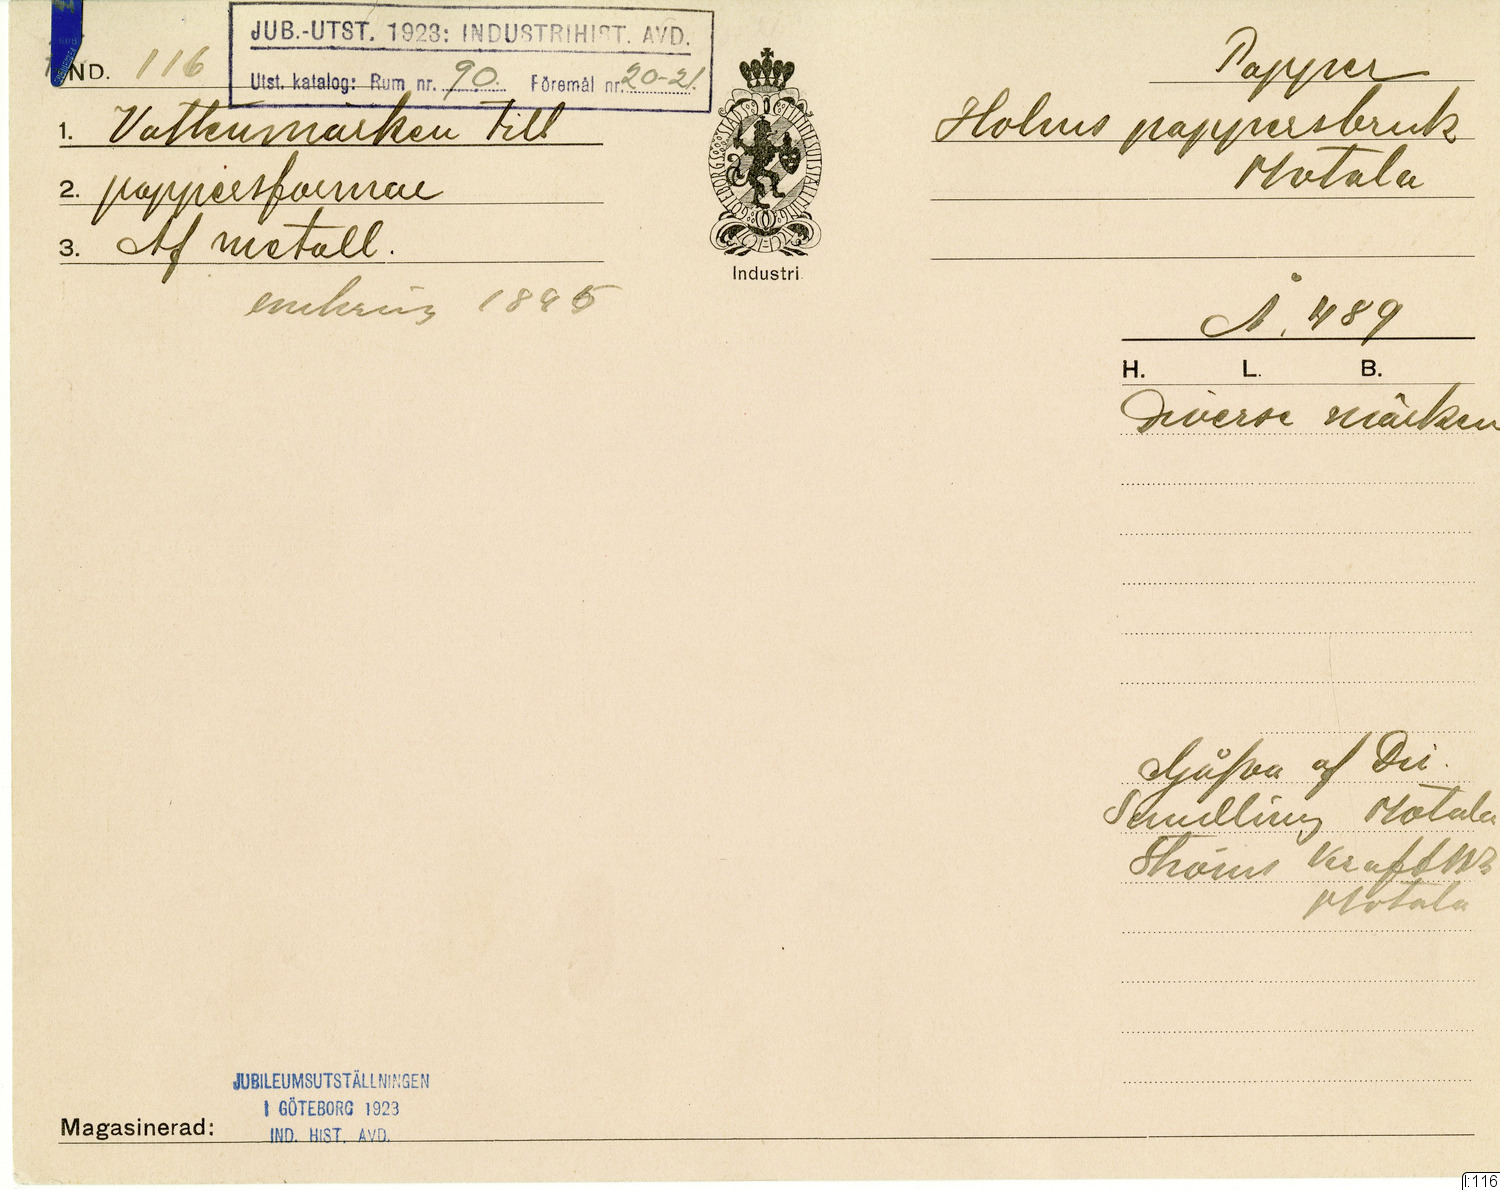 IND. 116
JUB.-UTST. 1923: INDUSTRIHIST. AVD.
Utst. katalog: Rum nr. 90. Föremål nr. 20-21.
1. Vattenmärken till
2. pappersformar
3. Af metall.
omkring 1895
GÖTEBORGS STADS MINNESUTSTÄLLNING
Industri
Papper
Holms pappersbruk
Motala
Å. 489
H. L. B.
Diverse märken
Gåfva af Dir.
Motala
Ströms Kraft
Motala
JUBILEUMSUTSTÄLLNINGEN
I GÖTEBORG 1923
IND. HIST. AVD.
Magasinerad:
I:116